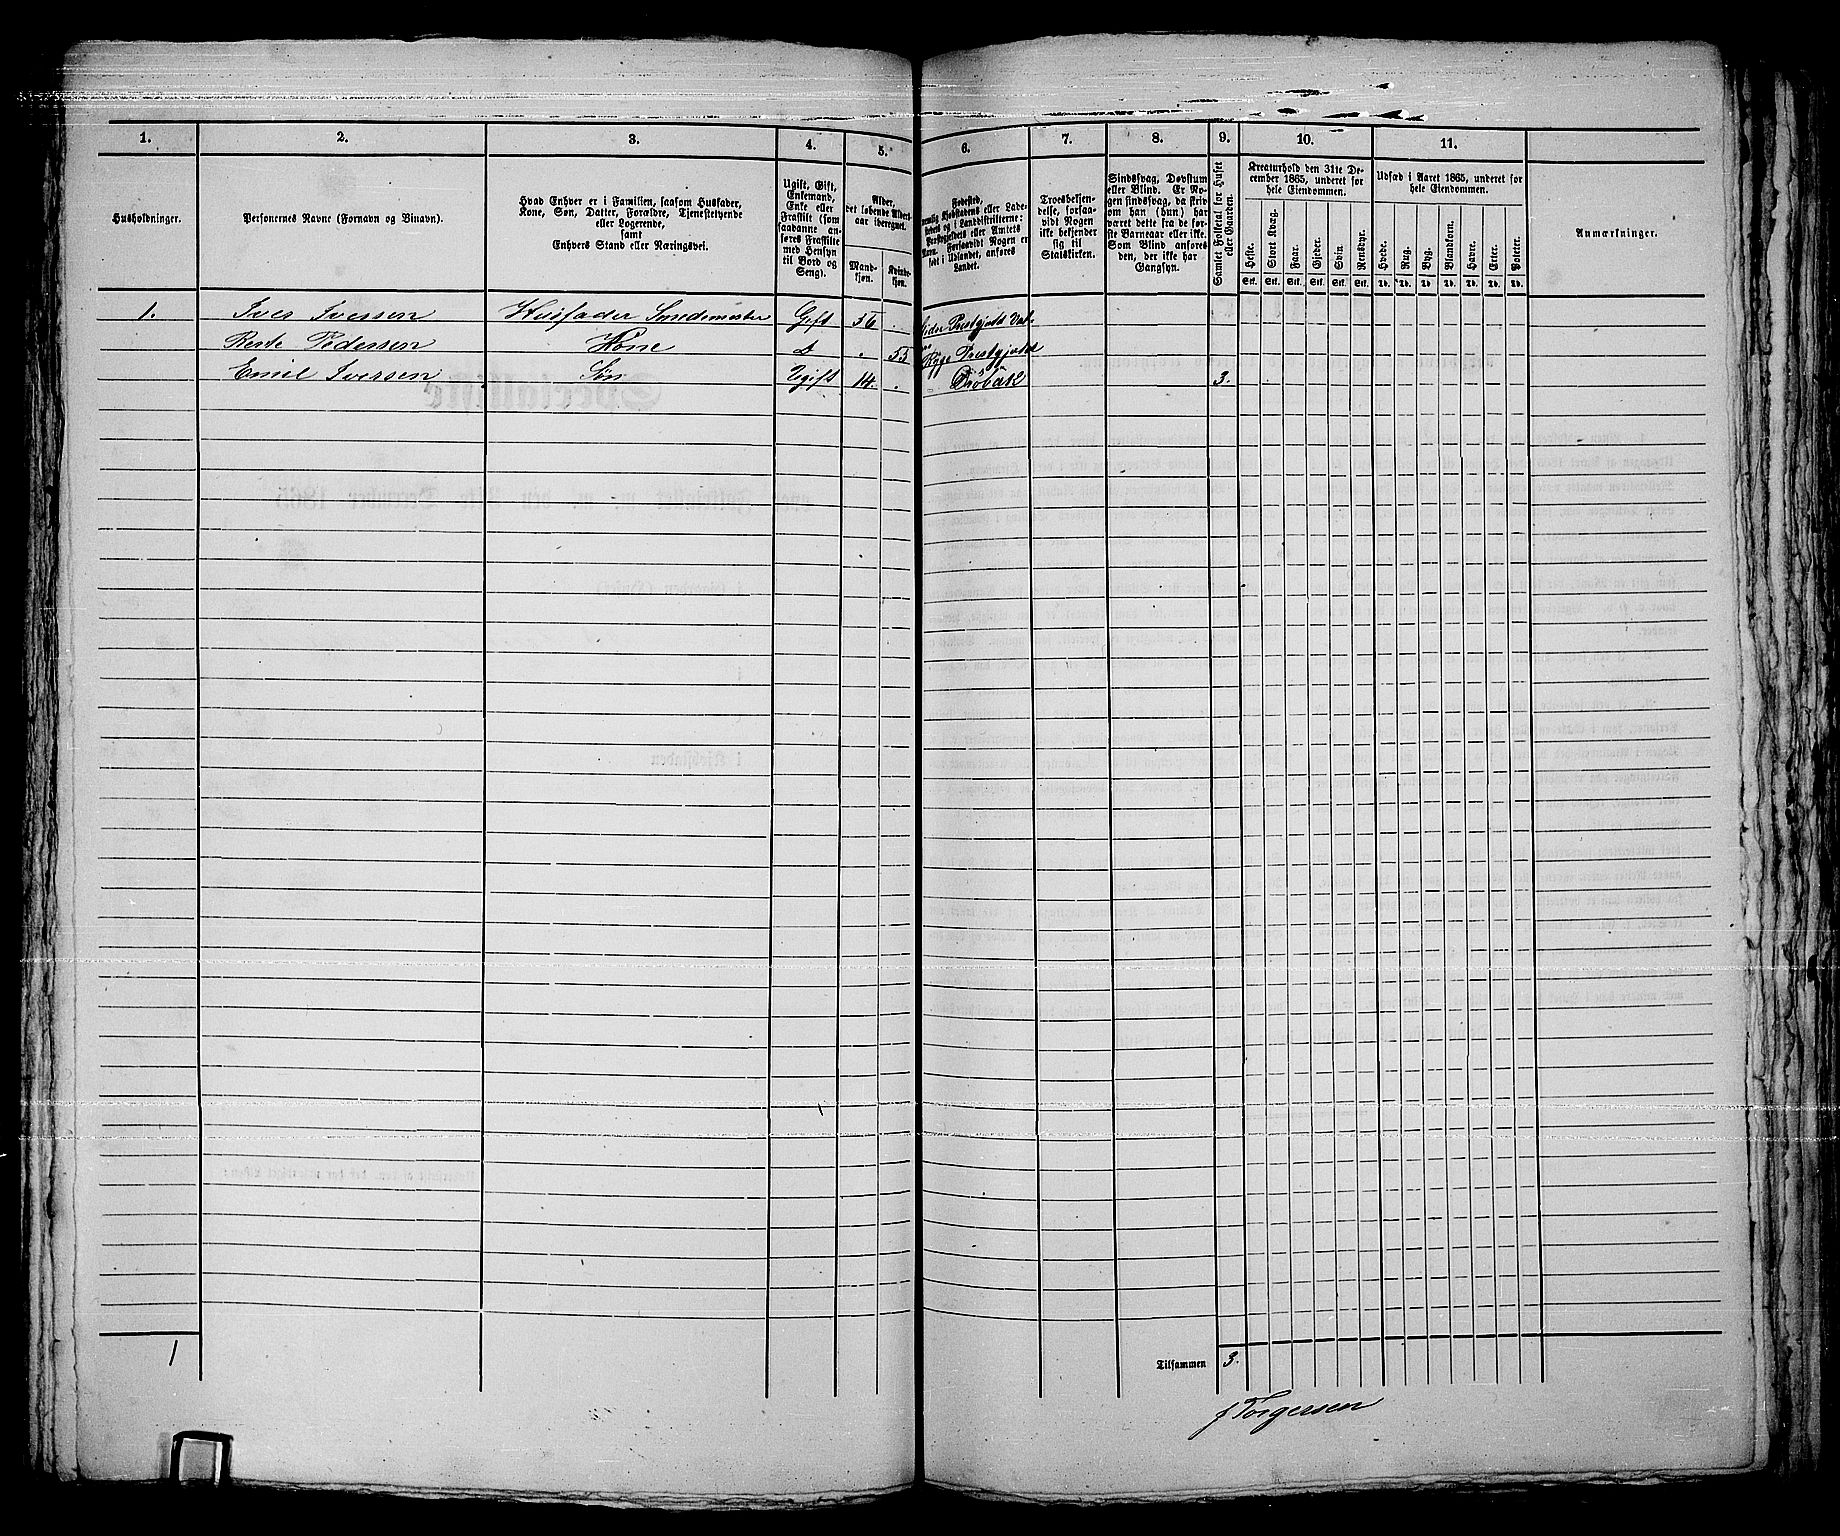 1. 2. 3. 4. 5. 6. 7. 8. 9. 10. 11.
Husholdninger.
Personernes Navne (Fornavn og Binavn).
Hvad Enhver er i Familien, saasom Husfader,
Kone, Søn, Datter, Forældre, Tjenestetyende
eller Logerende,
samt
Enhvers Stand eller Næringsvei.
Ugift, Gift,
Enkemand,
Enke eller
Fraskilt (som
saadanne an-
føres Fraskilte
med Hensyn
til Bord og
Seng).
Alder,
det løbende Alders-
aar iberegnet.
Mand-
kjøn.
Kvinde-
kjøn.
Fødested,
nemlig Kjøbstadens eller Lade-
stedets og i Landdistrikterne:
Præstegjeldets eller Amtets
Navn. Forsaavidt Nogen er
født i Udlandet, anføres
Landet.
Troesbekjen-
delse, forsaa-
vidt Nogen
ikke bekjender
sig til
Statskirken.
Sindssvag, Døvstum
eller Blind. Er No-
gen sindssvag, da skriv
om han (hun) har
været dette fra de før-
ste Barneaar eller ikke.
Som Blind anføres
den, der ikke har
Gangsyn.
Samlet Folketal for Huset
eller Gaarden.
Kreaturhold den 31te De-
cember 1865, underet for
hele Eiendommen.
Heste. Stort Kvæg. Faar. Gjeder. Svin. Rensdyr.
Stk. Stk. Stk. Stk. Stk. Stk.
Udsæd i Aaret 1865, underet for
hele Eiendommen.
Hvede. Rug. Byg. Blandkorn. Havre. Erter. Poteter.
Td. Td. Td. Td. Td. Td. Td.
Anmærkninger.
1. Iver Iversen Husfader Smedemester Gift 56 „ Præstgjeld
Pedersen Kone D „ 55 Præstgjeld
Emil Iversen Søn Ugift 14. „ Drøbak 3.
1 Tilsammen 3.
J Torgersen